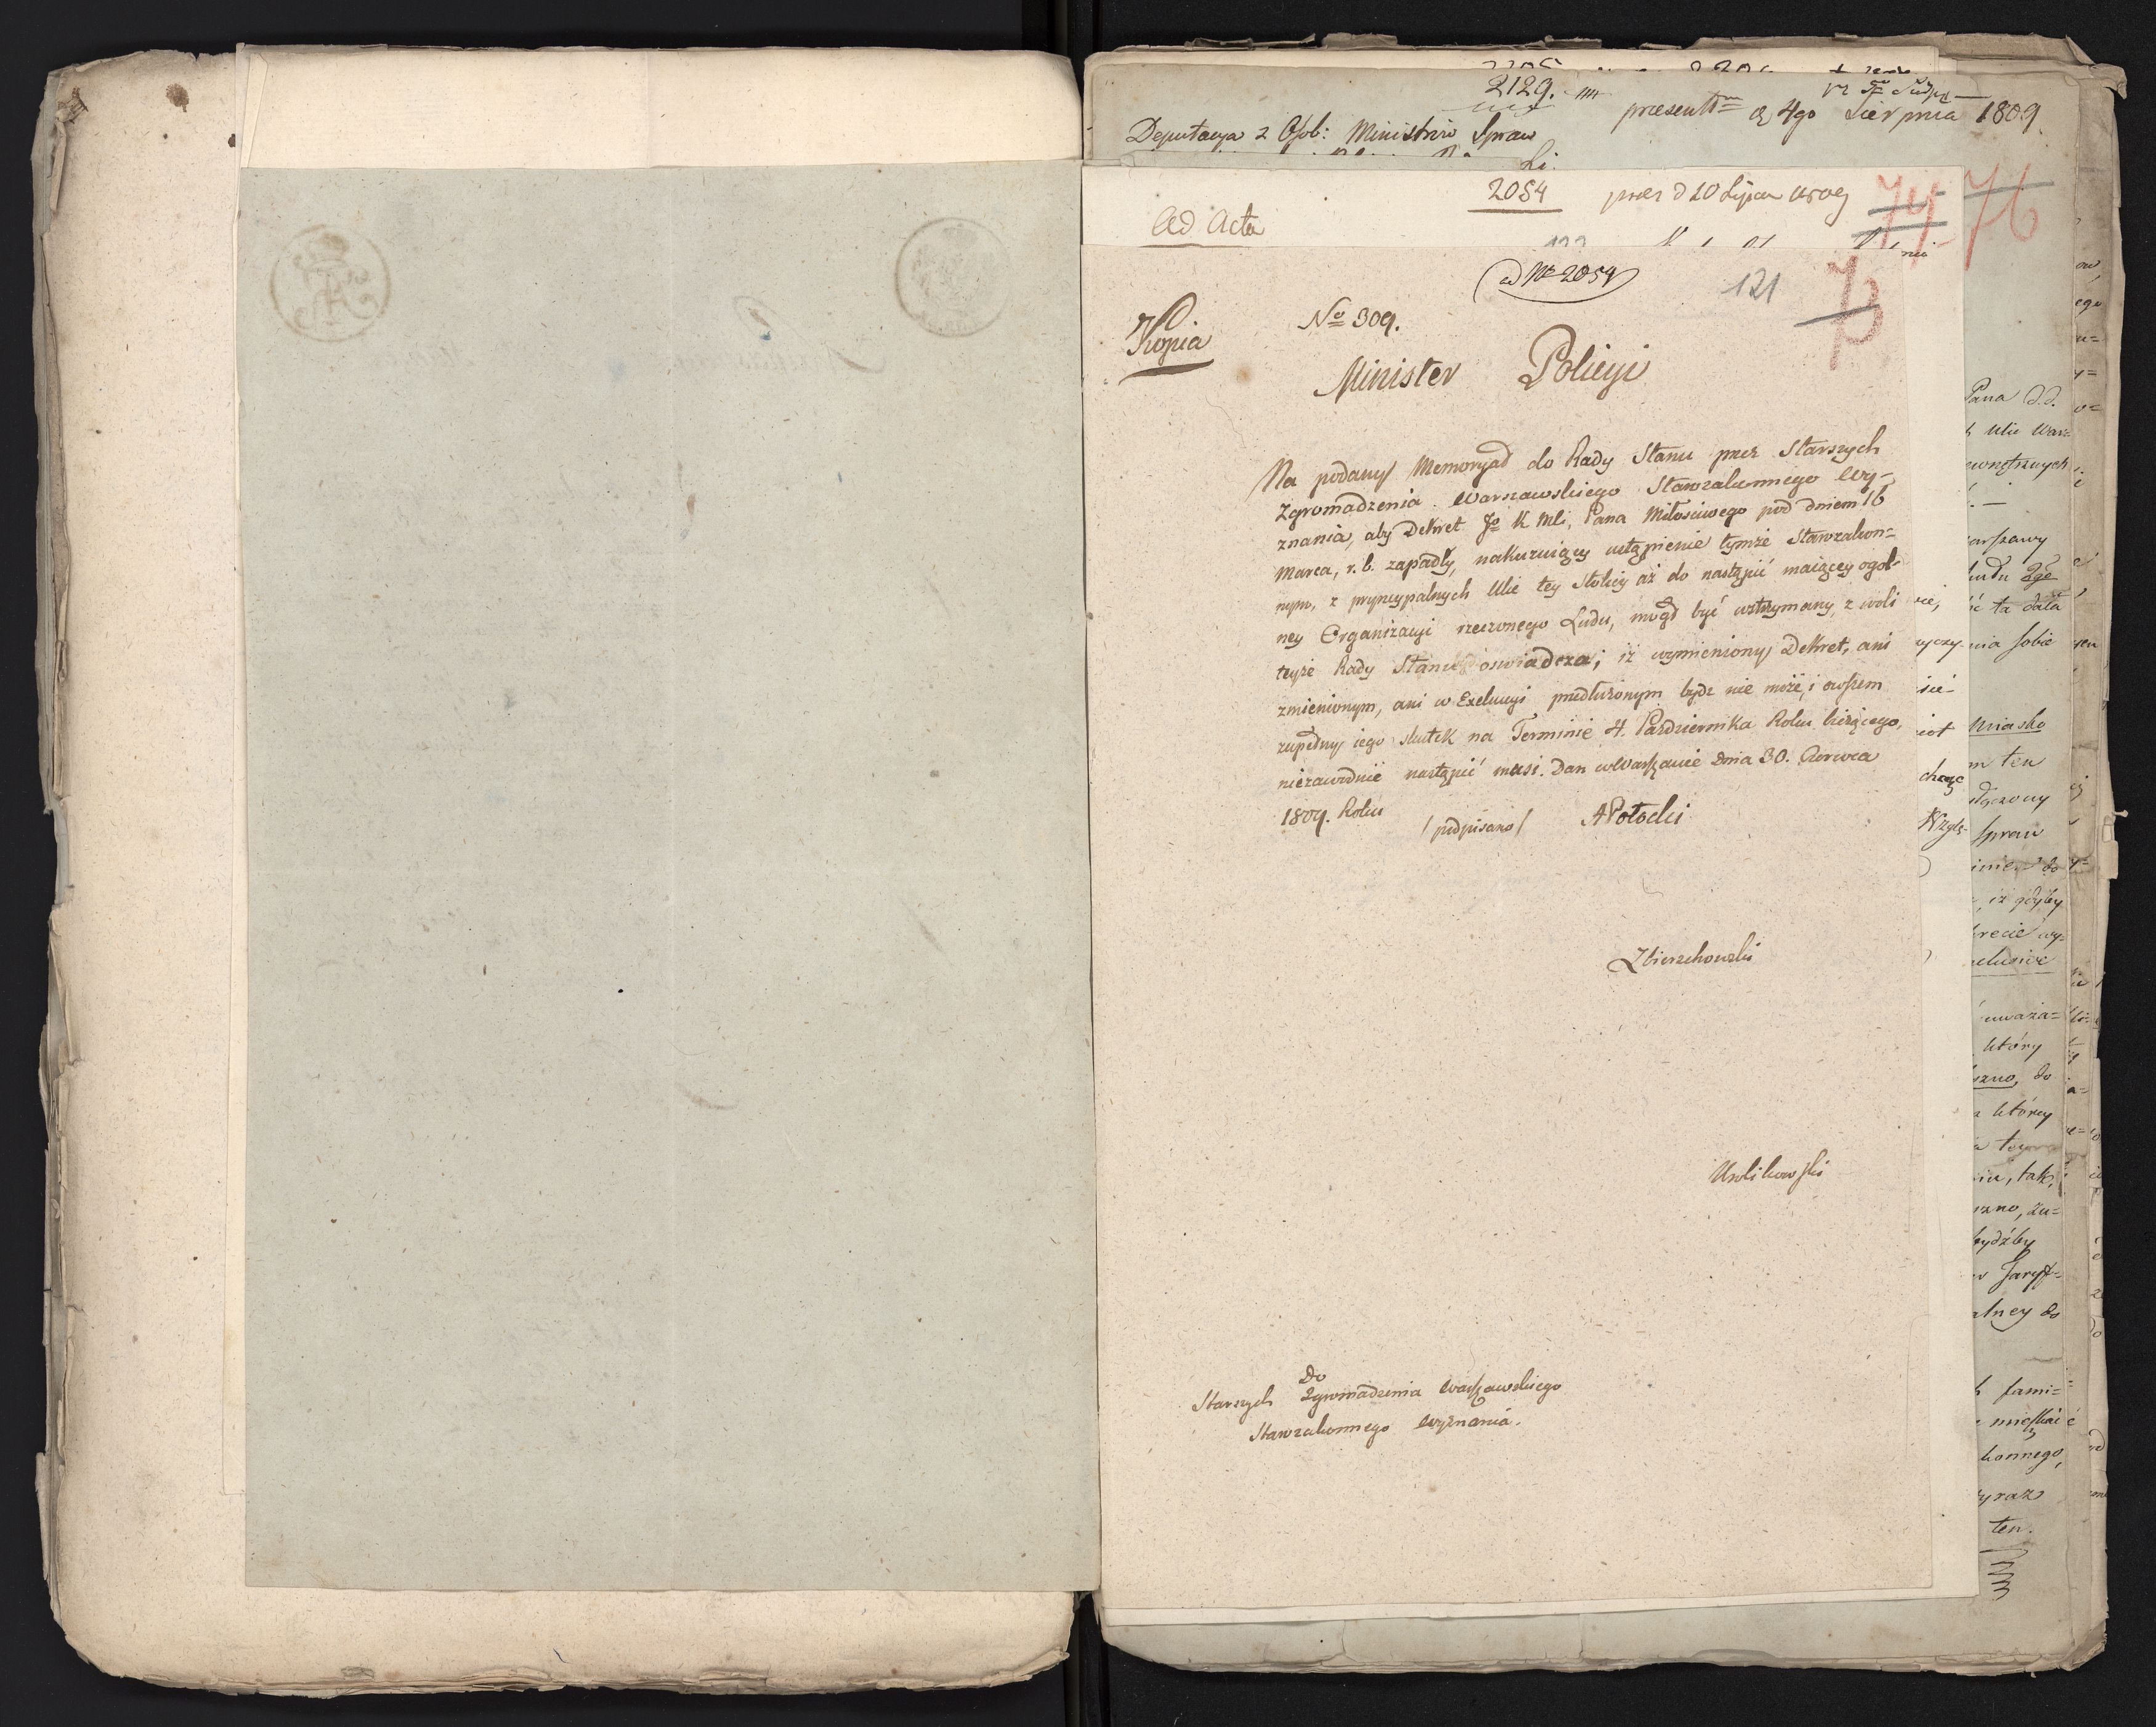 2129.
presentm d 4go Sierpnia 1809
Deputacya z Osob: Ministrów Spraw
2054 prez d 10 Lipca 1809
74 76
Ad Acta
ad Nr 2054
121
Kopia
No 309.
Minister Policyi
Na podany Memoryał do Rady Stanu przez Starszych
Zgromadzenia Warszawskiego Starozakonnego Wy-
znania, aby Dekret Jo K Mci, Pana Miłościwego pod dniem 16
Marca, r. b. zapadły, nakazuiący ustąpienie tymże Starozakon-
nym, z pryncypalnych Ulic tey Stolicy aż do nastąpić maiącey ogol-
ney Organizacyi rzeczonego Ludu, mógł być wstrzymany, z woli
teyże Rady Stanu oswiadcza; iż wymieniony Dekret, ani
zmienionym, ani w Exekucyi przedłużonym bydz nie może, i owszem
zupełny iego skutek na Terminie 4. Pazdziernika Roku bieżącego,
niezawodnie nastąpić musi. Dan w Warszawie dnia 30. Czerwca
1809. Roku /podpisano/ APotocki
Zbierzchowski
Do
Starszych Zgromadzenia Warszawskiego
Starozakonnego Wyznania.
Pana
arszawy
ta data
nia sobie
Miasto
ten
Spraw
iż gdyby
uważa=
który
do
którey
tak,
bydźby
ney do
fami=
ten.